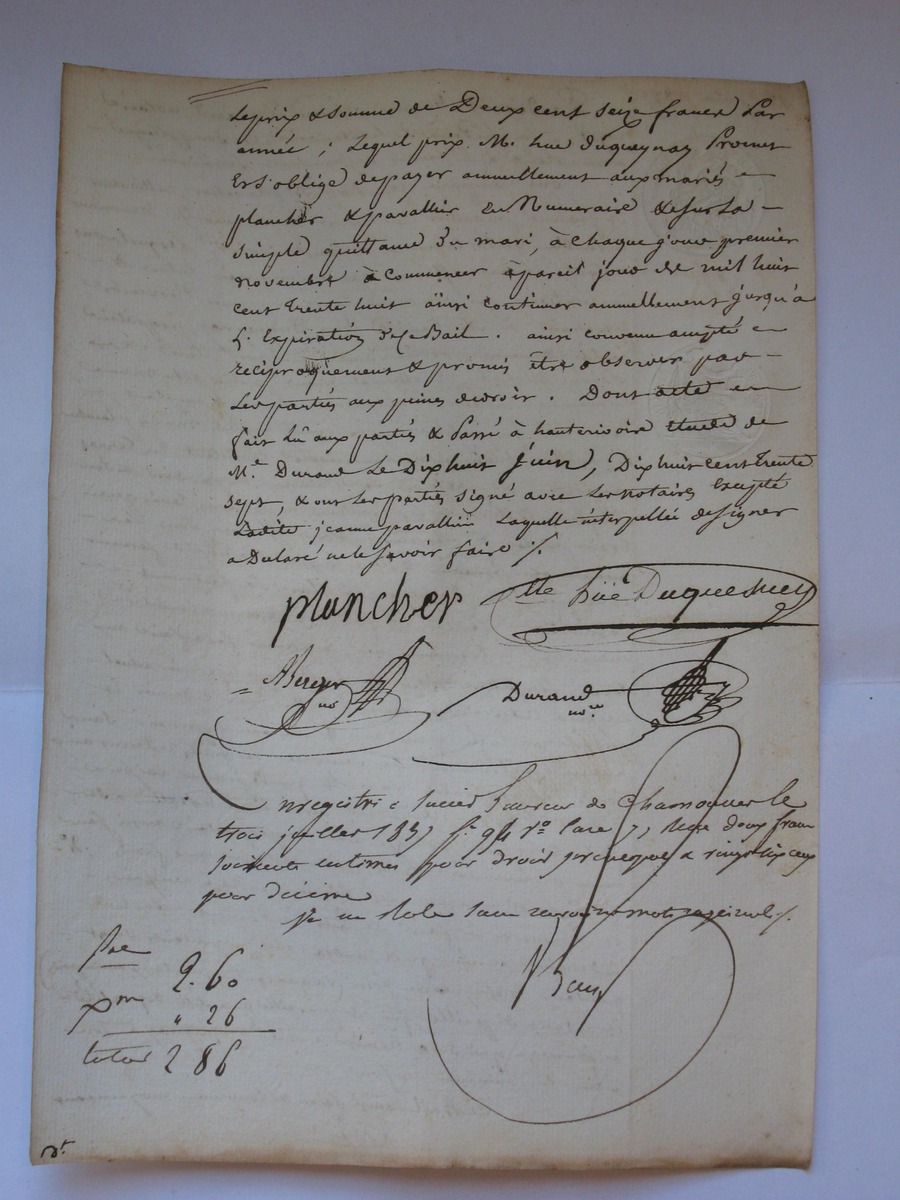 Le prix & somme de Deux cent seize francs Par
année ; Lequel prix M. hue duquesnay Promet
Et S'oblige de payer annuellement aux mariés
plancher & pavallier En Numeraire & sur La
simple quittance du mari, à chaque jour premier
novembre à Commencer à pareil jour de mil huit
cent Trente huit ainsi continuer annuellement jusqu'à
L'Expiration de ce Bail. ainsi convenu accepté
réciproquement & promis être observer par
Les parties aux peines de droit. Dont acte
fait lû aux parties & Passé à hauterivoire Etude de
Me. Durand Le Dix huit Juin, Dix huit cent Trente
sept, & ont Les parties signé avec Les notaires Excepté
Ladite jeanne pavallier Laquelle interpellée de signer
a Déclaré ne le Savoir faire ./.
plancher Hte hüe Duquesney
Berger no Durand nore
Enregistré à Lucien de Chamousset le
trois juillet 1837 fo 94 Vo Case 7, Reçu deux francs
soixante centimes pour droit & vingt six cent
pour décime
un Role sans renvoi ni mots rayés nuls ./.
Pal 2.60
xme " 26
total 2 86